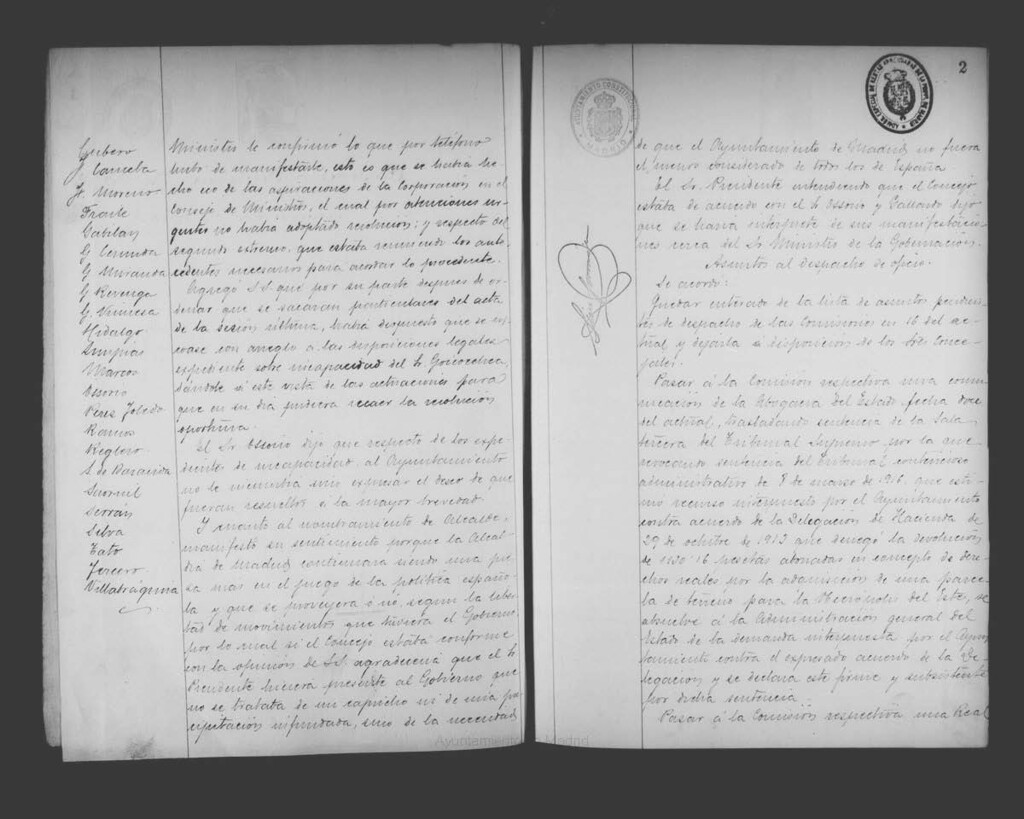 Cubero
Fraile
G. Miranda
G. Revenga
G. Vinuesa
Hidalgo
Limpias
Marcos
Ossorio
Pérez Toledo
Ramos
Reglero
S. de Baranda
Serrán
Silva
Tato
Tercero
Villabrágima
Ministro le confirmó lo que por teléfono
hubo de manifestarle, esto es que se había he-
cho eco de las aspiraciones de la Corporación en el
Consejo de Ministros, el cual por atenciones ur-
gentes no había adoptado resolución; y respecto del
segundo extremo, que estaba reuniendo los ante-
cedentes necesarios para acordar lo procedente.
Agregó S.S. que por su parte después de or-
denar que se sacaran particulares del acta
de la sesión última, había dispuesto que se in-
coase con arreglo a las disposiciones legales
expediente sobre incapacidad del Sr. Goicoechea,
dándole a éste vista de las actuaciones para
que en su día pudiera recaer la resolución
oportuna.
El Sr. Ossorio dijo que respecto de los expe-
dientes de incapacidad, al Ayuntamiento
no le incumbía sino expresar el deseo de que
fueran resueltos a la mayor brevedad.
Y en cuanto al nombramiento de Alcalde,
manifestó su sentimiento porque la Alcal-
día de Madrid continuara siendo una pie-
za más en el juego de la política españo-
la y que se proveyera ó no, según la liber-
tad de movimientos que tuviera el Gobierno
por lo cual si el Concejo estaba conforme
con la opinión de S.S. agradecería que el Sr.
Presidente hiciera presente al Gobierno que
no se trataba de un capricho ni de una pre-
cipitación infundada, sino de la necesidad
2
AYUNTAMIENTO CONSTITUCIONAL
MADRID
de que el Ayuntamiento de Madrid no fuera
el menos considerado de todos los de España.
El Sr. Presidente entendiendo que el Concejo
estaba de acuerdo con el Sr. Ossorio y Gallardo dijo
que se haría intérprete de sus manifestacio-
nes cerca del Sr. Ministro de la Gobernación.
Asuntos al despacho de oficio.
Se acordó:
Quedar enterado de la lista de asuntos pendien-
tes de despacho de las Comisiones en 16 del ac-
tual y dejarla a disposición de los Sres. Conce-
jales.
Pasar á la Comisión respectiva una comu-
nicación de la Abogacía del Estado, fecha doce
del actual, trasladando sentencia de la Sala
tercera del Tribunal Supremo por la que
revocando sentencia del Tribunal contencioso
administrativo de 8 de marzo de 1916, que esti-
mó recurso interpuesto por el Ayuntamiento
contra acuerdo de la Delegación de Hacienda de
29 de octubre de 1913 que denegó la devolución
de pesetas abonadas en concepto de dere-
chos reales por la adquisición de una parce-
la de terreno para la Necrópolis del Este, se
absuelve á la Administración general del
Estado de la demanda interpuesta por el Ayun-
tamiento contra el expresado acuerdo de la De-
legación y se declara éste firme y subsistente
por dicha sentencia.
Pasar á la Comisión respectiva una Real
Ayuntamiento de Madrid